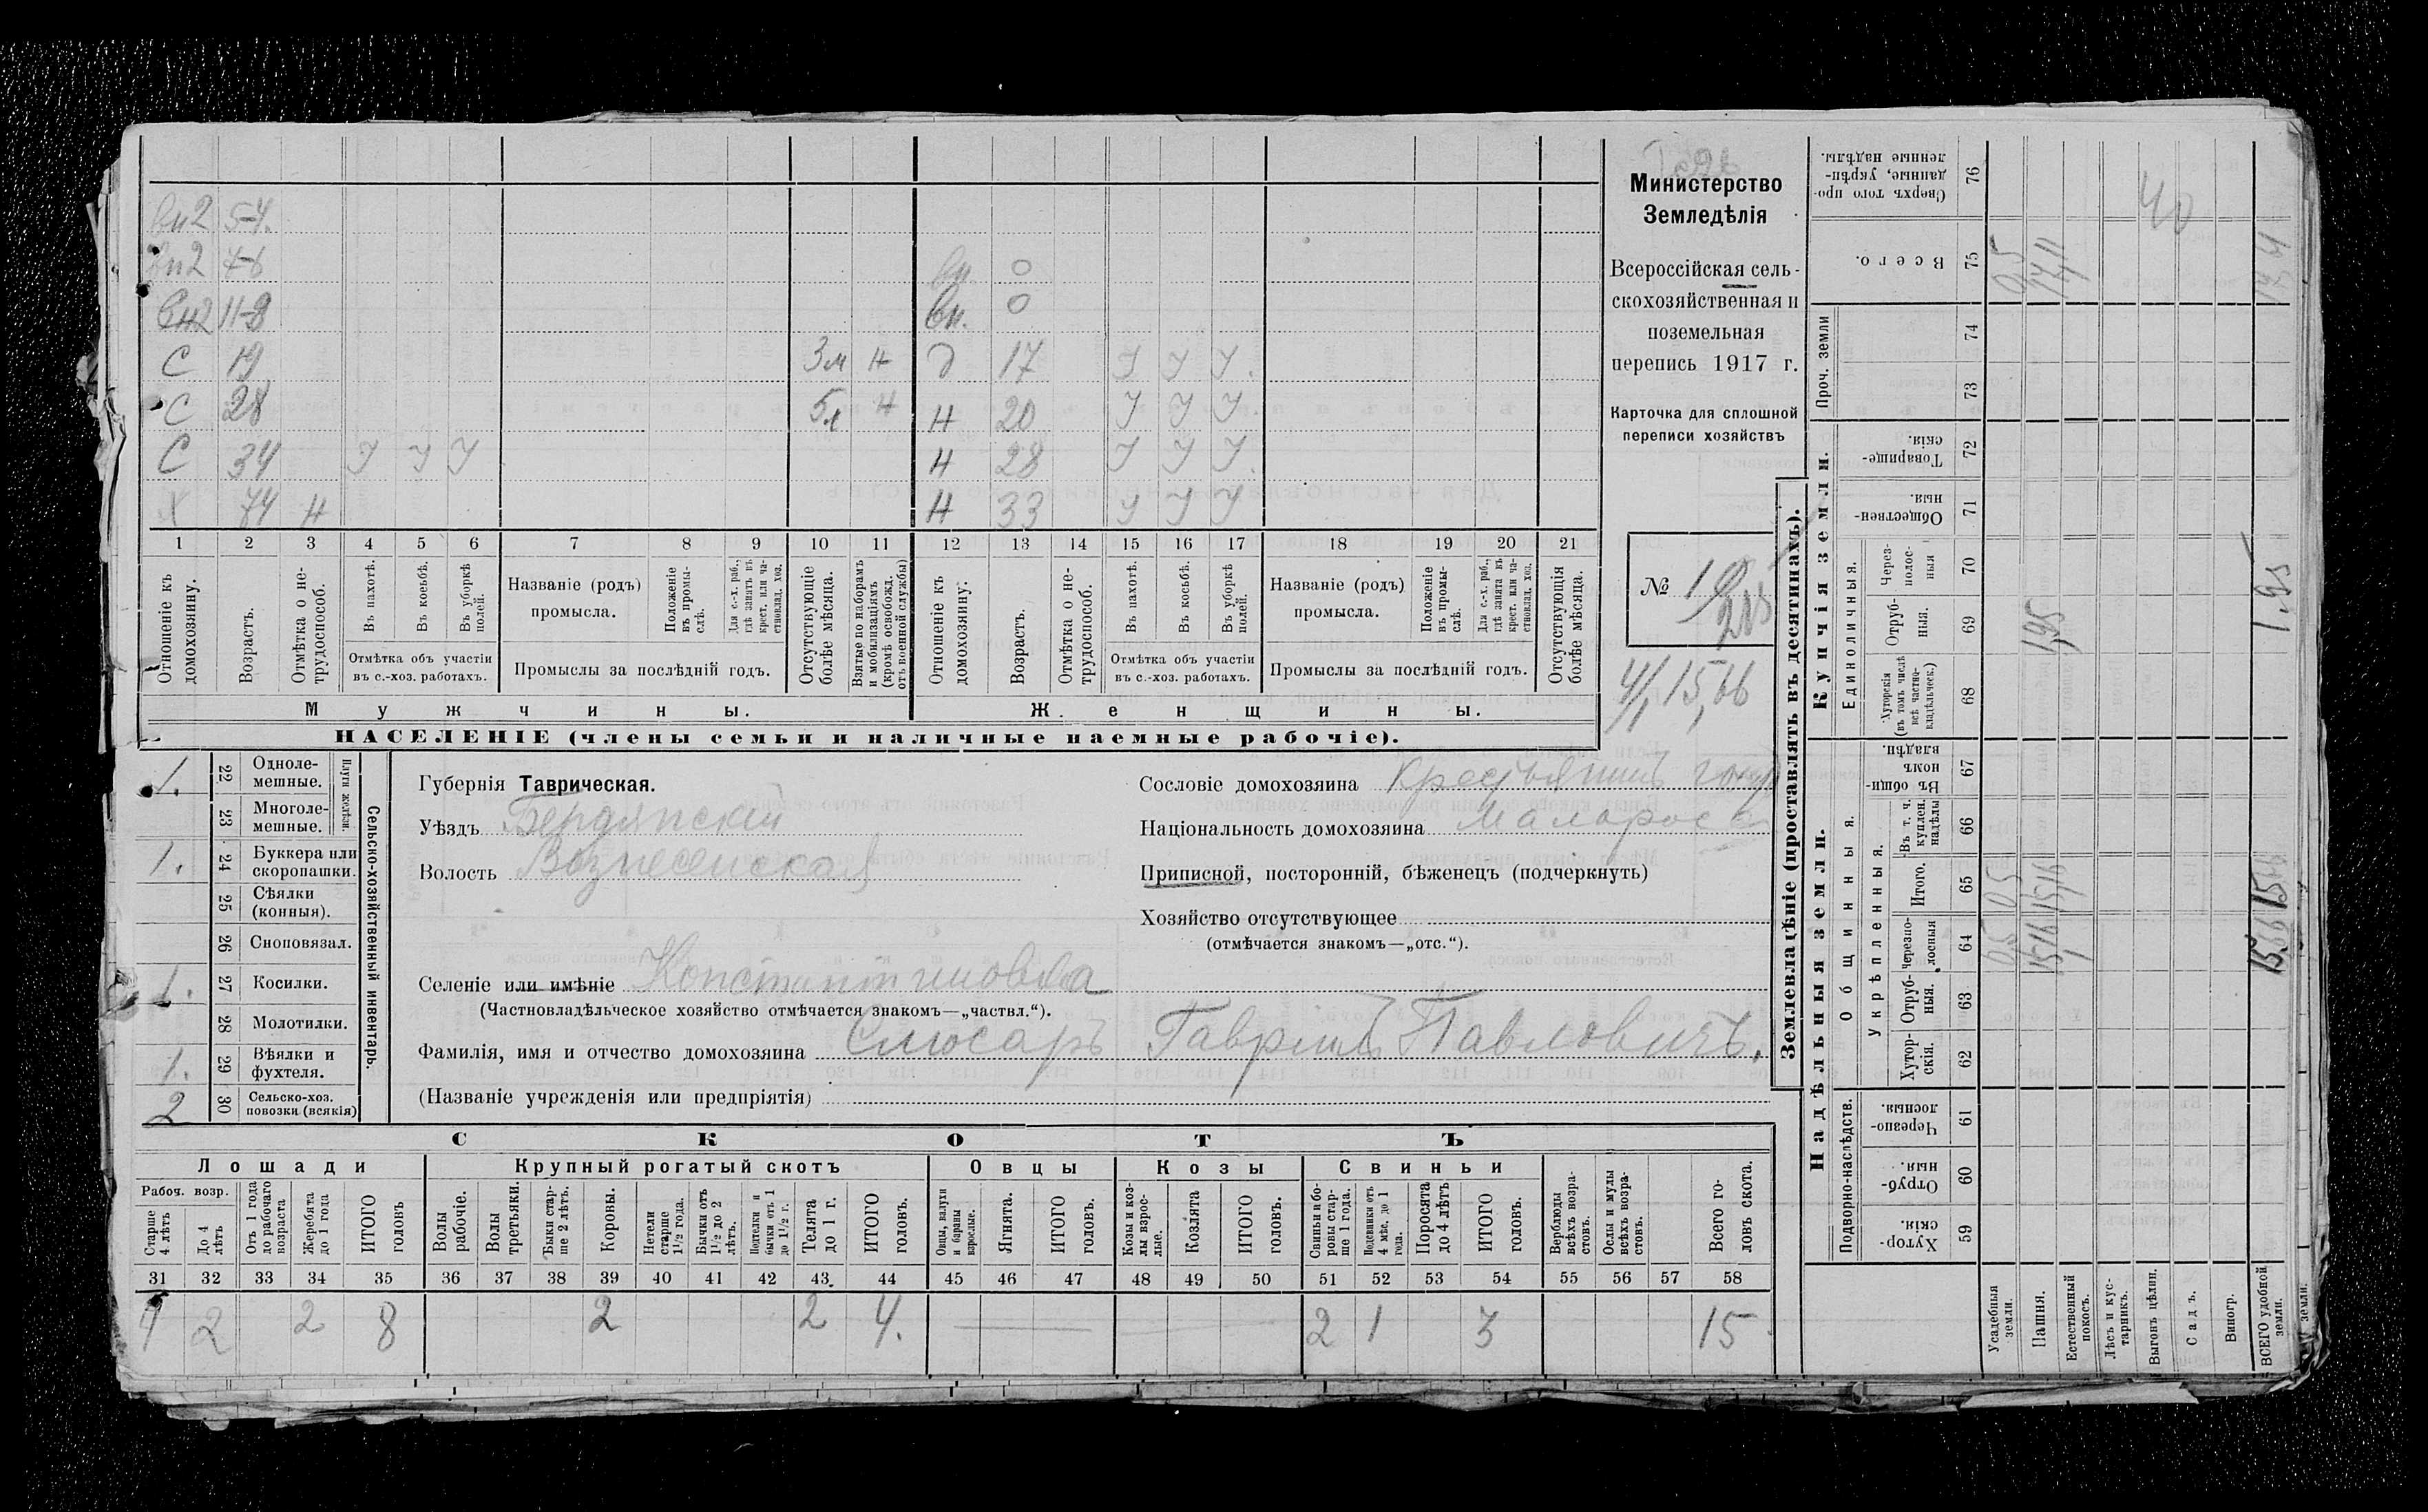 вн2 54.
вн2 4-6 вн. 0
вн2 11-8 вн. 0
С 19 3м н д 17 У У У.
С 28 5л н н 20 У У У.
С 34 У У У н 28 У У У.
Х 74 н н 33 У У У
1 2 3 4 5 6 7 8 9 10 11 12 13 14 15 16 17 18 19 20 21
Отношеніе къ домохозяину.
Возрастъ.
Отмѣтка о нетрудоспособ.
Въ пахотѣ.
Въ косьбѣ.
Въ уборкѣ полей.
Отмѣтка объ участіи въ с.-хоз. работахъ.
Названіе (родъ) промысла.
Положеніе въ промыслѣ.
Для с.-х. раб., гдѣ занятъ въ крест. или частновлад. хоз.
Промыслы за послѣдній годъ.
Отсутствующіе болѣе мѣсяца.
Взятые по наборамъ и мобилизаціямъ (кромѣ освобожд. отъ военной службы)
Отношеніе къ домохозяину.
Возрастъ.
Отмѣтка о нетрудоспособ.
Въ пахотѣ.
Въ косьбѣ.
Въ уборкѣ полей.
Отмѣтка объ участіи въ с.-хоз. работахъ.
Названіе (родъ) промысла.
Положеніе въ промыслѣ.
Для с.-х. раб., гдѣ занята въ крест. или частновлад. хоз.
Промыслы за послѣдній годъ.
Отсутствующія болѣе мѣсяца.
Мужчины.
Женщины.
НАСЕЛЕНІЕ (члены семьи и наличные наемные рабочіе).
Министерство
Земледѣлія
Всероссійская сель-
скохозяйственная и
поземельная
перепись 1917 г.
Карточка для сплошной
переписи хозяйствъ
№
15,66
1. 22 Однолемешные.
23 Многолемешные.
Плуги желѣзн.
1. 24 Буккера или скоропашки.
25 Сѣялки (конныя).
26 Сноповязал.
1. 27 Косилки.
28 Молотилки.
1. 29 Вѣялки и фухтеля.
2 30 Сельско-хоз. повозки (всякія)
Сельско-хозяйственный инвентарь.
Губернія Таврическая.
Уѣздъ Бердянскій
Волость Вознесенская
Селеніе или имѣніе Константиновка
(Частновладѣльческое хозяйство отмѣчается знакомъ—„частвл.“).
Фамилія, имя и отчество домохозяина Слюсаръ Гавріилъ Павловичъ.
(Названіе учрежденія или предпріятія)
Сословіе домохозяина крестьянинъ
Національность домохозяина малоросс
Приписной, посторонній, бѣженецъ (подчеркнуть)
Хозяйство отсутствующее
(отмѣчается знакомъ—„отс.“).
СКОТЪ
Лошади
Крупный рогатый скотъ
Овцы
Козы
Свиньи
Рабоч. возр.
Старше 4 лѣтъ
До 4 лѣтъ
Отъ 1 года до рабочаго возраста
Жеребята до 1 года
ИТОГО головъ
Волы рабочіе.
Волы третьяки.
Быки старше 2 лѣтъ.
Коровы.
Нетели старше 1½ года.
Бычки отъ 1½ до 2 лѣтъ.
Подтелки и бычки отъ 1 до 1½ г.
Телята до 1 г.
ИТОГО головъ.
Овцы, валухи и бараны взрослые.
Ягнята.
ИТОГО головъ.
Козы и козлы взрослые.
Козлята
ИТОГО головъ.
Свиньи и боровы старше 1 года.
Подсвинки отъ 4 мѣс. до 1 года.
Поросята до 4 лѣтъ
ИТОГО головъ.
Верблюды всѣхъ возрастовъ.
Ослы и мулы всѣхъ возрастовъ.
Всего головъ скота.
31 32 33 34 35 36 37 38 39 40 41 42 43. 44 45 46 47 48 49 50 51 52 53 54 55 56 57 58
4 2 2 8 2 2 4. 2 1 3 15
Землевладѣніе (проставлять въ десятинахъ).
Надѣльныя земли.
Купчія земли.
Подворно-наслѣдств.
Общинныя.
Укрѣпленныя.
Единоличныя.
Проч. земли
Сверхъ того проданные, укрѣпленные надѣлы. 76 40
Всего. 75 0,5 17,11
74
73
Товарищескія. 72
Общественныя. 71
Черезполосныя 70
Отрубныя. 69 1,95 1,95
Хуторскія (въ томъ числѣ всѣ частновладѣльческ.) 68
Въ общинномъ владѣн. 67
Въ т. ч. куплен. надѣлы 66
Итого. 65 0,5 15,16
Черезполосныя 64 0,5 15,16 15,66
Отрубныя. 63
Хуторскія. 62
Черезполосныя. 61
Отрубныя. 60
Хуторскія. 59
Усадебныя земли.
Пашня.
Естественный покосъ.
Лѣсъ и кустарникъ.
Выгонъ цѣлин.
Садъ.
Виногр.
ВСЕГО удобной земли.
земли.